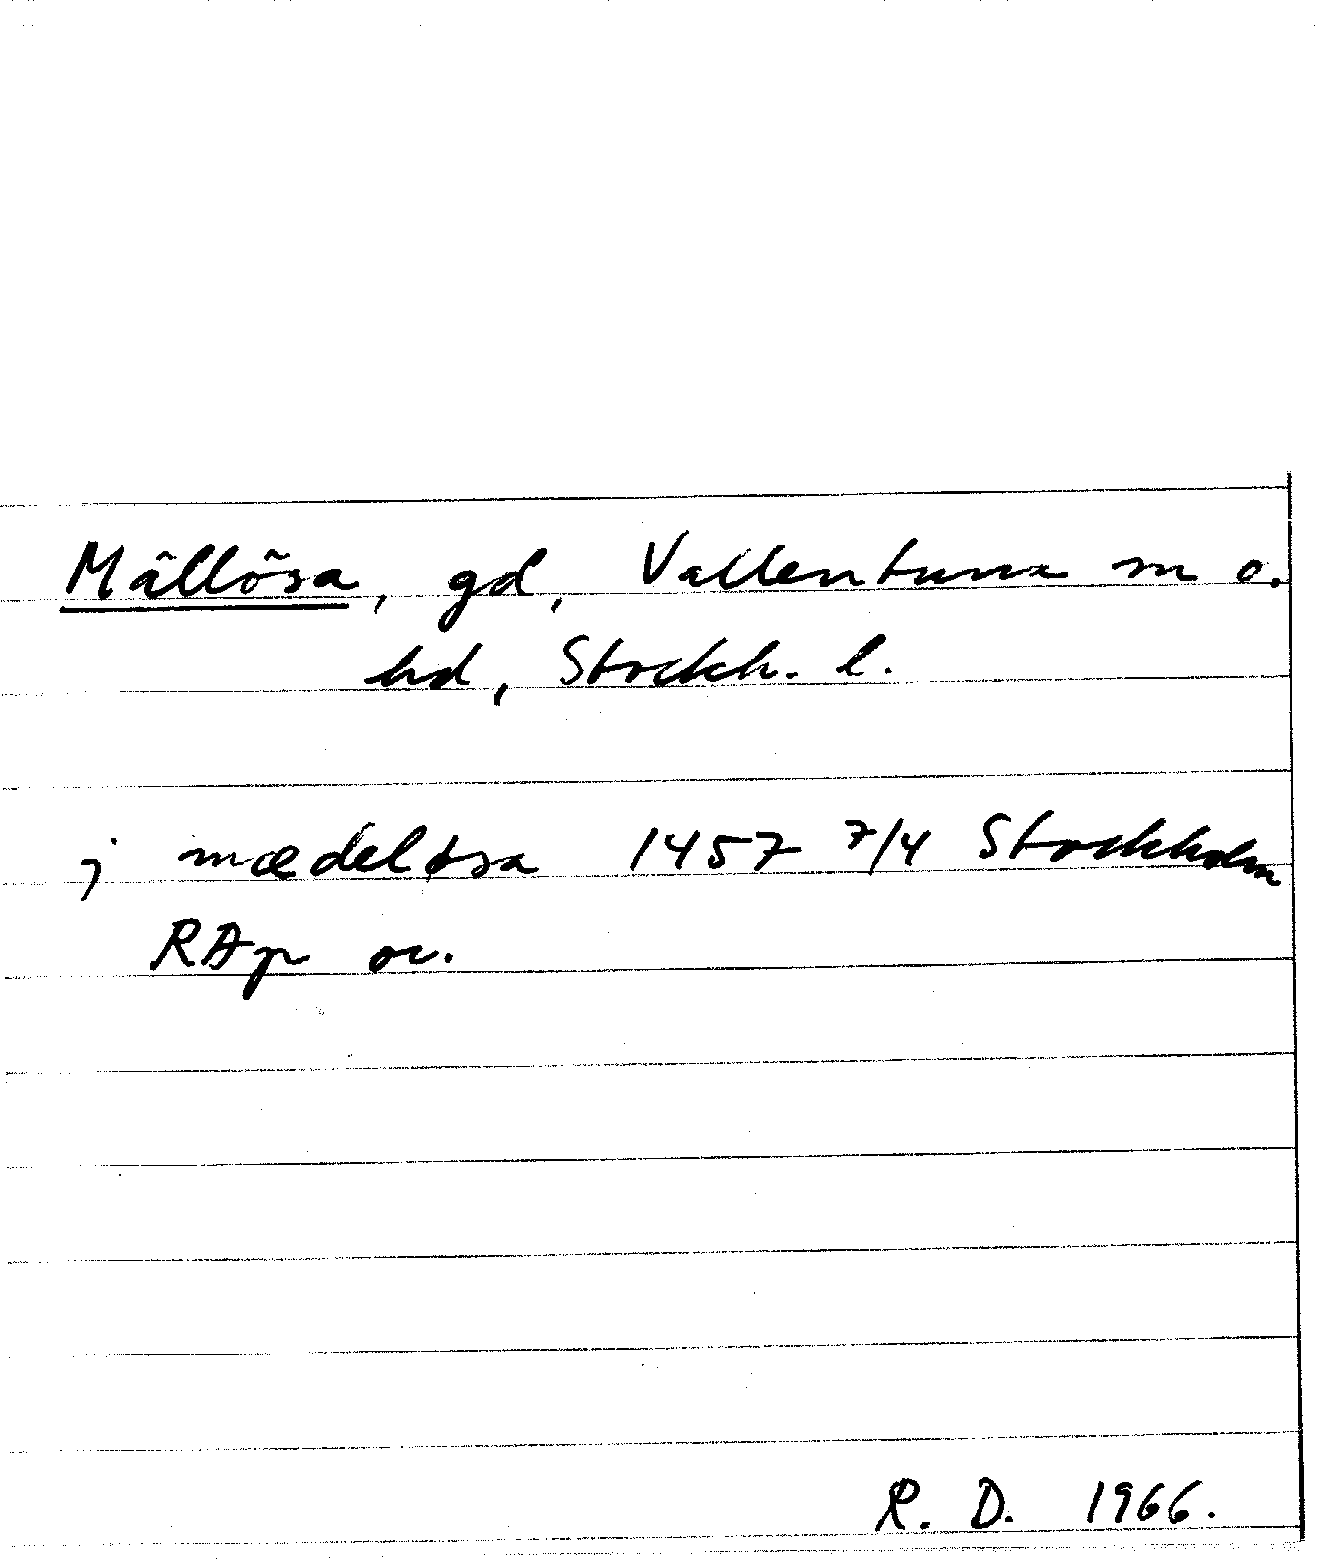 Mällösa, gd, Vallentuna sn o.
hd, Stockh. l.
j mædeløsa 1457 7/4 Stockholm
RAp or.
R. D. 1966.